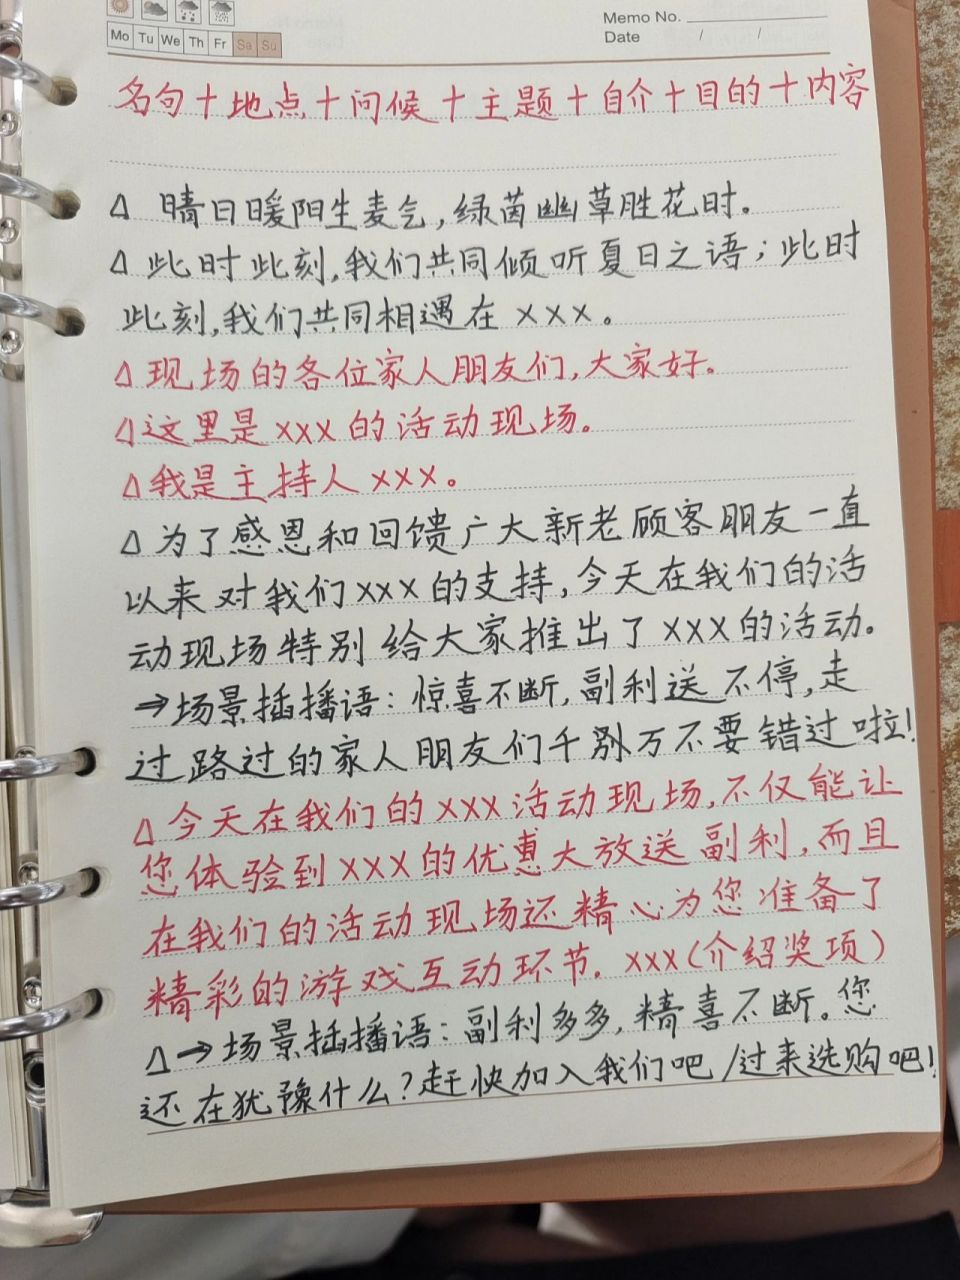 Memo No.
Mo Tu We Th Fr Sa Su
Date / /
名句+地点+问候+主题+自介+目的+内容
△ 晴日暖阳生麦气,绿茵幽草胜花时。
△ 此时此刻,我们共同倾听夏日之语;此时
此刻,我们共同相遇在 xxx。
△ 现场的各位家人朋友们,大家好。
△ 这里是 xxx 的活动现场。
△ 我是主持人 xxx。
△ 为了感恩和回馈广大新老顾客朋友一直
以来对我们 xxx 的支持,今天在我们的活
动现场特别给大家推出了 xxx 的活动.
→场景插播语:惊喜不断,副利送不停,走
过路过的家人朋友们千别万不要错过啦!
△ 今天在我们的 xxx 活动现场,不仅能让
您体验到 xxx 的优惠大放送副利,而且
在我们的活动现场还精心为您准备了
精彩的游戏互动环节. xxx(介绍奖项)
△→场景插播语:副利多多,精喜不断。您
还在犹豫什么?赶快加入我们吧/过来选购吧!